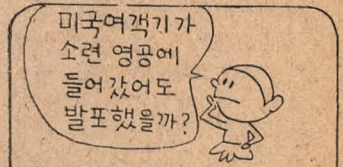 미국여객기가
소련 영공에
들어갔어도
발포했을까?